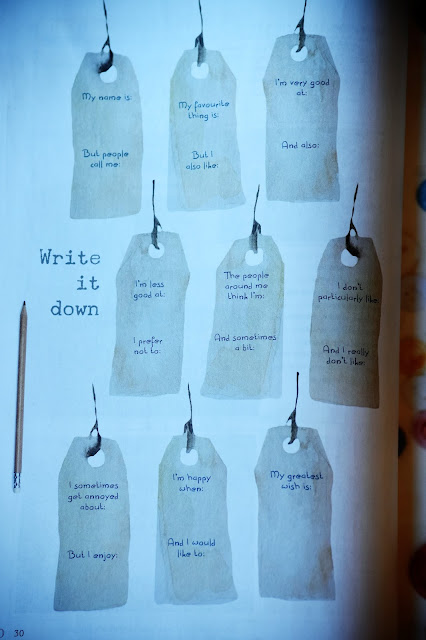 My name is:
But people
call me:
My favourite
thing is:
But I
also like:
I'm very good
at:
And also:
Write
it
down
I'm less
good at:
I prefer
not to:
The people
around me
think I'm:
And sometimes
a bit:
I don't
particularly like:
And I really
don't like:
I sometimes
get annoyed
about:
But I enjoy:
I'm happy
when:
And I would
like to:
My greatest
wish is:
30